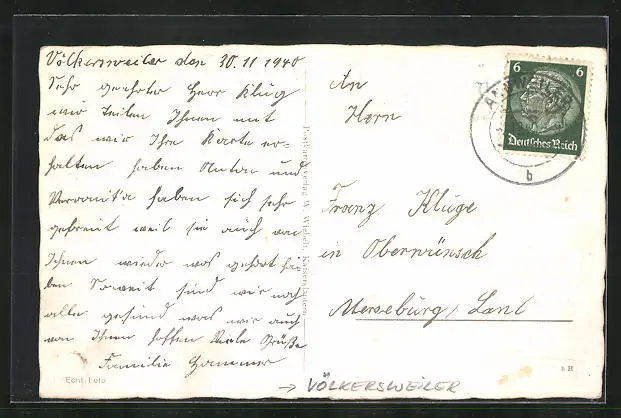 Völkersweiler den 30.11 1940
Sehr geehrter Herr Klug
wir teilen Ihnen mit
das wir Ihre Karte er-
halten haben Anton und
Veronika haben sich sehr
gefreut weil sie auch von
Ihnen wieder was gehört ha-
ben Soweit sind wir noch
alle gesund was wir auch
von Ihnen hoffen Viele Grüße
Familie Hammer
Echt Foto
An
Herrn
Franz Kluge
in Oberwünsch
Merseburg/ Land
6 6
Deutsches Reich
b
→ VÖLKERSWEILER